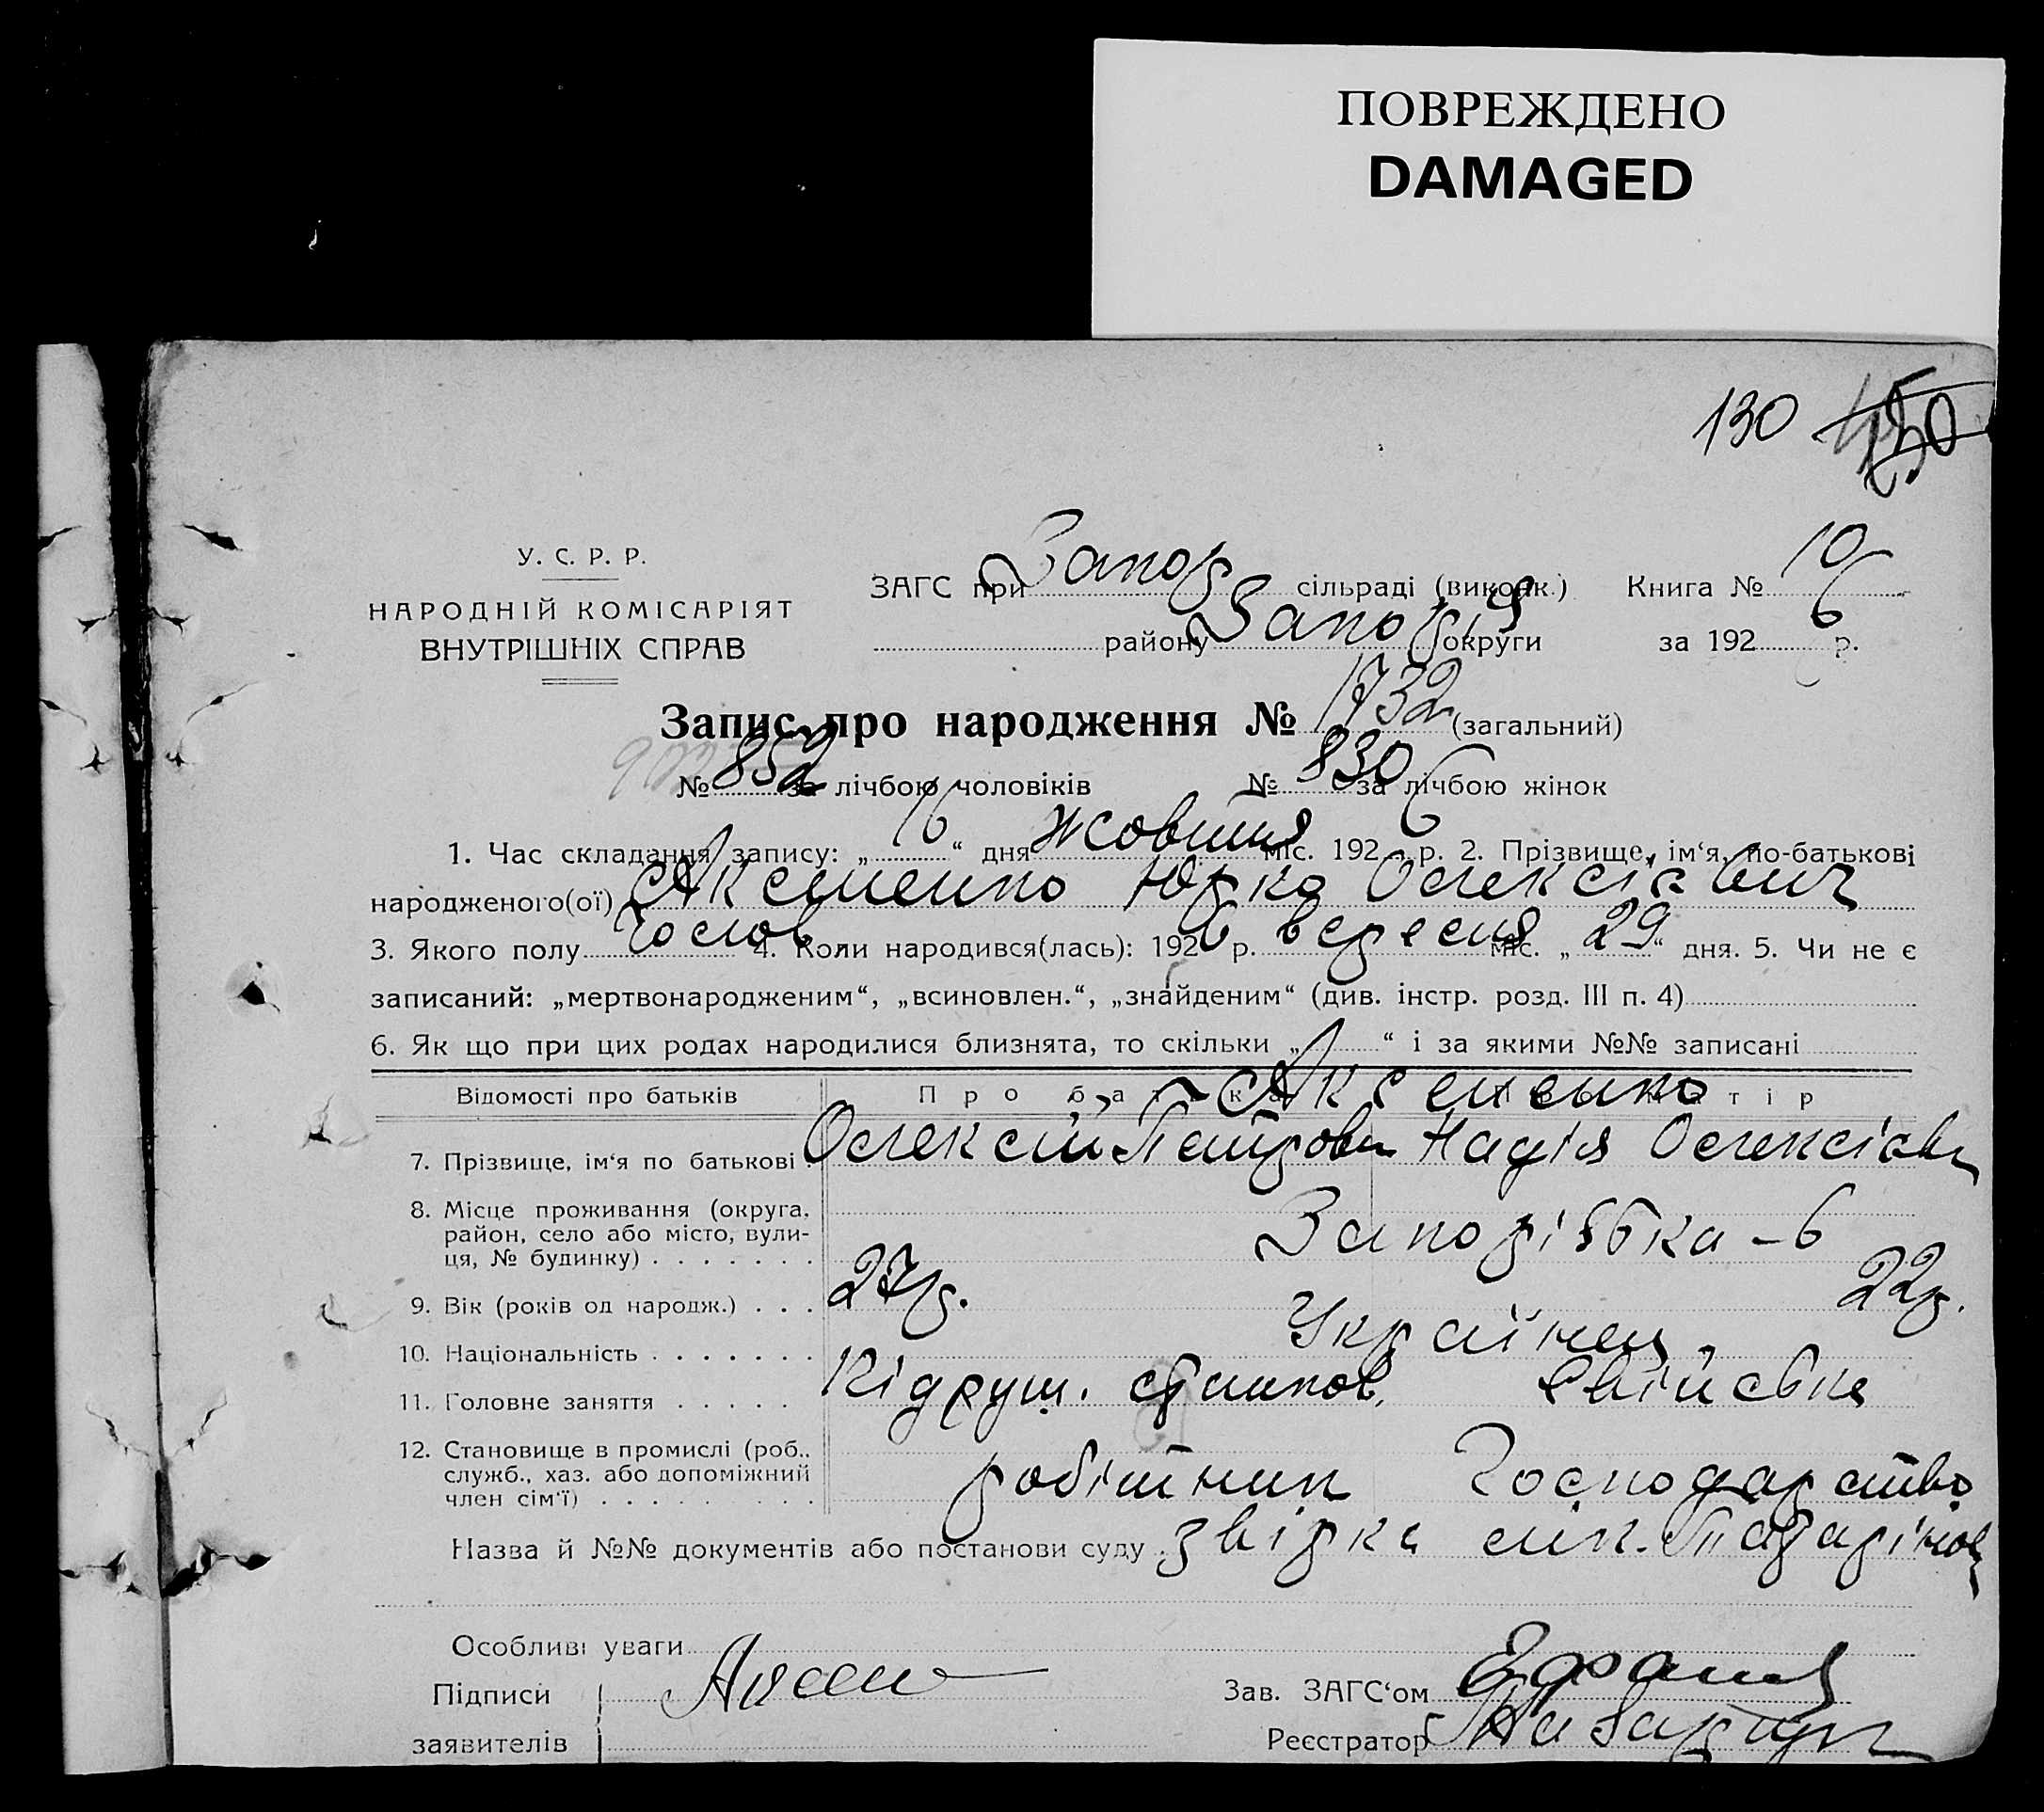 ПОВРЕЖДЕНО
DAMAGED
130
У. С. Р. Р.
НАРОДНІЙ КОМІСАРІЯТ
ВНУТРІШНІХ СПРАВ
ЗАГС при Запор сільраді (виконк.) Книга № 10
району Запоріз округи за 1926 р.
Запис про народження № 1732 (загальний)
№ 852 за лічбою чоловіків № 830 за лічбою жінок
1. Час складання запису: „16“ дня жовтня міс. 1926 р. 2. Прізвище, ім‘я, по-батькові
народженого(ої) Юрко Олексієвич
3. Якого полу Чолов. 4. Коли народився(лась): 1926 р. вересня міс. „29“ дня. 5. Чи не є
записаний: „мертвонародженим“, „всиновлен.“, „знайденим“ (див. інстр. розд. III п. 4)
6. Як що при цих родах народилися близнята, то скільки „ “ і за якими №№ записані
Відомості про батьків Про батька Про матір
7. Прізвище, ім‘я по батькові Олексій Петрович Надія Олексієвн
8. Місце проживання (округа, район, село або місто, вулиця, № будинку)
9. Вік (років од народж.) 27 р. 22 р.
10. Національність Українец
11. Головне заняття
12. Становище в промислі (роб., служб., хаз. або допоміжний член сім‘ї) робітник Господарство
Назва й №№ документів або постанови суду
Особливі уваги
Підписи
заявителів
Зав. ЗАГС‘ом
Реєстратор